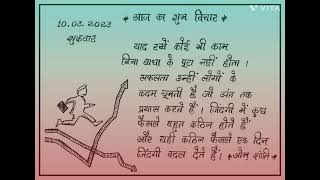 VITA
10.03.2023
* आज का शुभ विचार *
शुक्रवार
याद रखें कोई भी काम
बिना बाधा के पूरा नहीं होता ।
सफलता उन्हीं लोगों के
कदम चूमती हैं जो अंत तक
प्रयास करते हैं । ज़िंदगी में कुछ
फैसले बहुत कठिन होते हैं
और यही कठिन फैसले एक दिन
ज़िंदगी बदल देते हैं । * ओम् शांति *